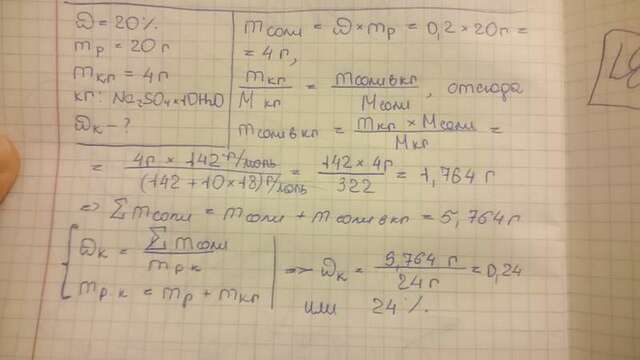 ω = 20%
mр = 20 г
mкг = 4 г
кг: Na₂SO₄ × 10H₂O
ωк – ?
mсоли = ω × mр = 0,2 × 20г =
= 4 г,
mкг / Mкг = mсоли в кг / Mсоли, отсюда
mсоли в кг = mкг × Mсоли / Mкг =
= 4г × 142 г/моль / (142 + 10 × 18) г/моль = 142 × 4г / 322 = 1,764 г
=> ∑ mсоли = mсоли + mсоли в кг = 5,764 г
{ ωк = ∑ mсоли / mр.к
mр.к = mр + mкг
=> ωк = 5,764 г / 24 г = 0,24
или 24 %.